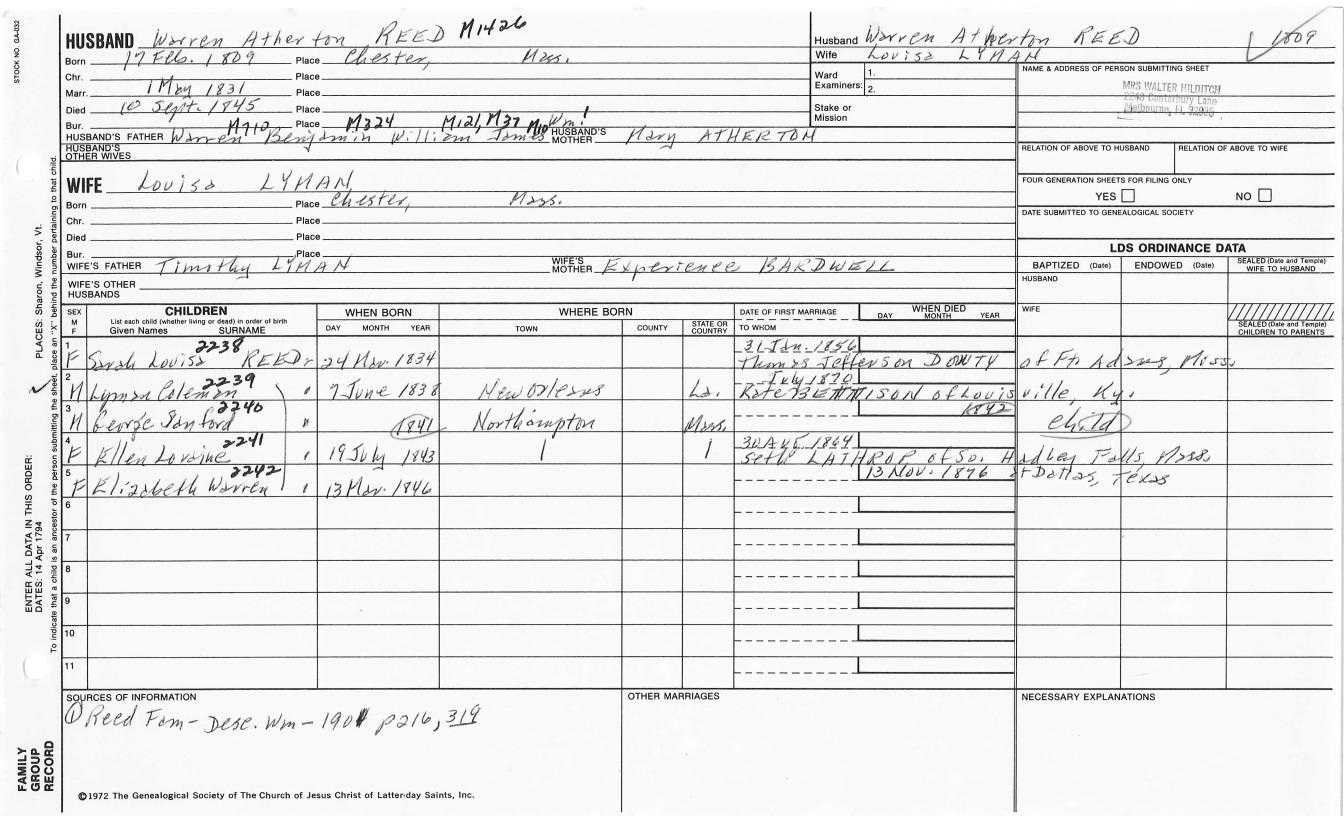 STOCK NO. GA-032
HUSBAND Warren Atherton REED M1426
Born 17 Feb. 1809 Place Chester, Mass.
Chr. Place
Marr. 1 May 1831 Place
Died 10 Sept. 1845 Place
Bur. Place
M710 M324 M121, M37 M10 Wm!
HUSBAND'S FATHER Warren Benjamin William James HUSBAND'S MOTHER Mary ATHERTON
HUSBAND'S OTHER WIVES
Husband Warren Atherton REED 1809
Wife Louisa LYMAN
Ward Examiners: 1.
2.
Stake or Mission
NAME & ADDRESS OF PERSON SUBMITTING SHEET
MRS WALTER HILDITCH
2243 Canterbury Lane
Melbourne, FL 32935
RELATION OF ABOVE TO HUSBAND RELATION OF ABOVE TO WIFE
FOUR GENERATION SHEETS FOR FILING ONLY
YES NO
DATE SUBMITTED TO GENEALOGICAL SOCIETY
WIFE Louisa LYMAN
Born Place Chester, Mass.
Chr. Place
Died Place
Bur. Place
WIFE'S FATHER Timothy LYMAN WIFE'S MOTHER Experience BARDWELL
WIFE'S OTHER HUSBANDS
LDS ORDINANCE DATA
BAPTIZED (Date) ENDOWED (Date) SEALED (Date and Temple) WIFE TO HUSBAND
HUSBAND
WIFE
SEALED (Date and Temple) CHILDREN TO PARENTS
SEX M F
CHILDREN
List each child (whether living or dead) in order of birth
Given Names SURNAME
WHEN BORN
DAY MONTH YEAR
WHERE BORN
TOWN COUNTY STATE OR COUNTRY
DATE OF FIRST MARRIAGE
TO WHOM
WHEN DIED
DAY MONTH YEAR
1 2238 31 Jan. 1856
F Sarah Louisa REED 24 Mar. 1834 Thomas Jefferson DOWTY of Ft. Adams, Miss.
2 2239 July 1870
M Lyman Coleman " 7 June 1838 New Orleans La. Kate BENNISON of Louisville, Ky.
3 2240 1842
M George Sanford " 1841 Northampton Mass. child
4 2241 30 Aug. 1864
F Ellen Loraine " 19 July 1843 Seth LATHROP of So. Hadley Falls, Mass.
5 2242 13 Nov. 1876 at Dallas, Texas
F Elizabeth Warren " 13 Mar. 1846
6
7
8
9
10
11
SOURCES OF INFORMATION
① Reed Fam - Desc. Wm - 1901 p216, 319
OTHER MARRIAGES
NECESSARY EXPLANATIONS
©1972 The Genealogical Society of The Church of Jesus Christ of Latter-day Saints, Inc.
FAMILY GROUP RECORD
ENTER ALL DATA IN THIS ORDER:
DATES: 14 Apr 1794
PLACES: Sharon, Windsor, Vt.
To indicate that a child is an ancestor of the person submitting the sheet, place an "X" behind the number pertaining to that child.